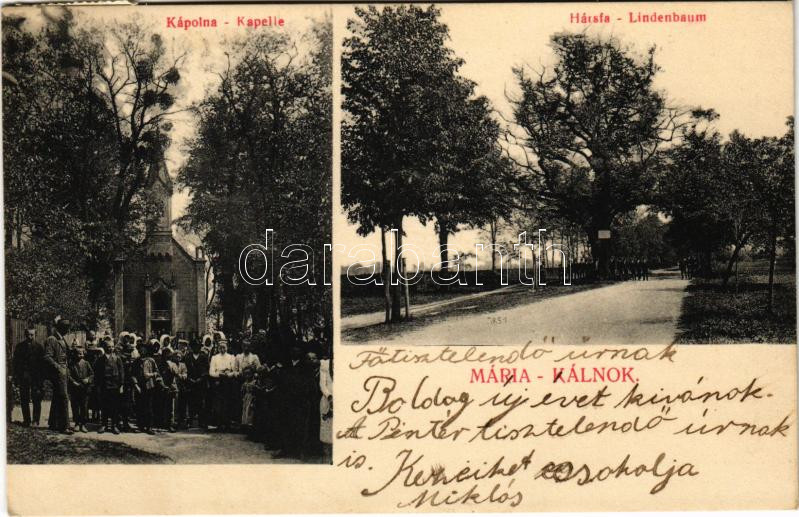 Kápolna - Kapelle
Hársfa - Lindenbaum
darabanth
Főtisztelendő úrnak
MÁRIA - KÁLNOK.
Boldog új évet kivánok.
A Pintér tisztelendő úrnak
is.
Kezeiket csokolja
Miklós